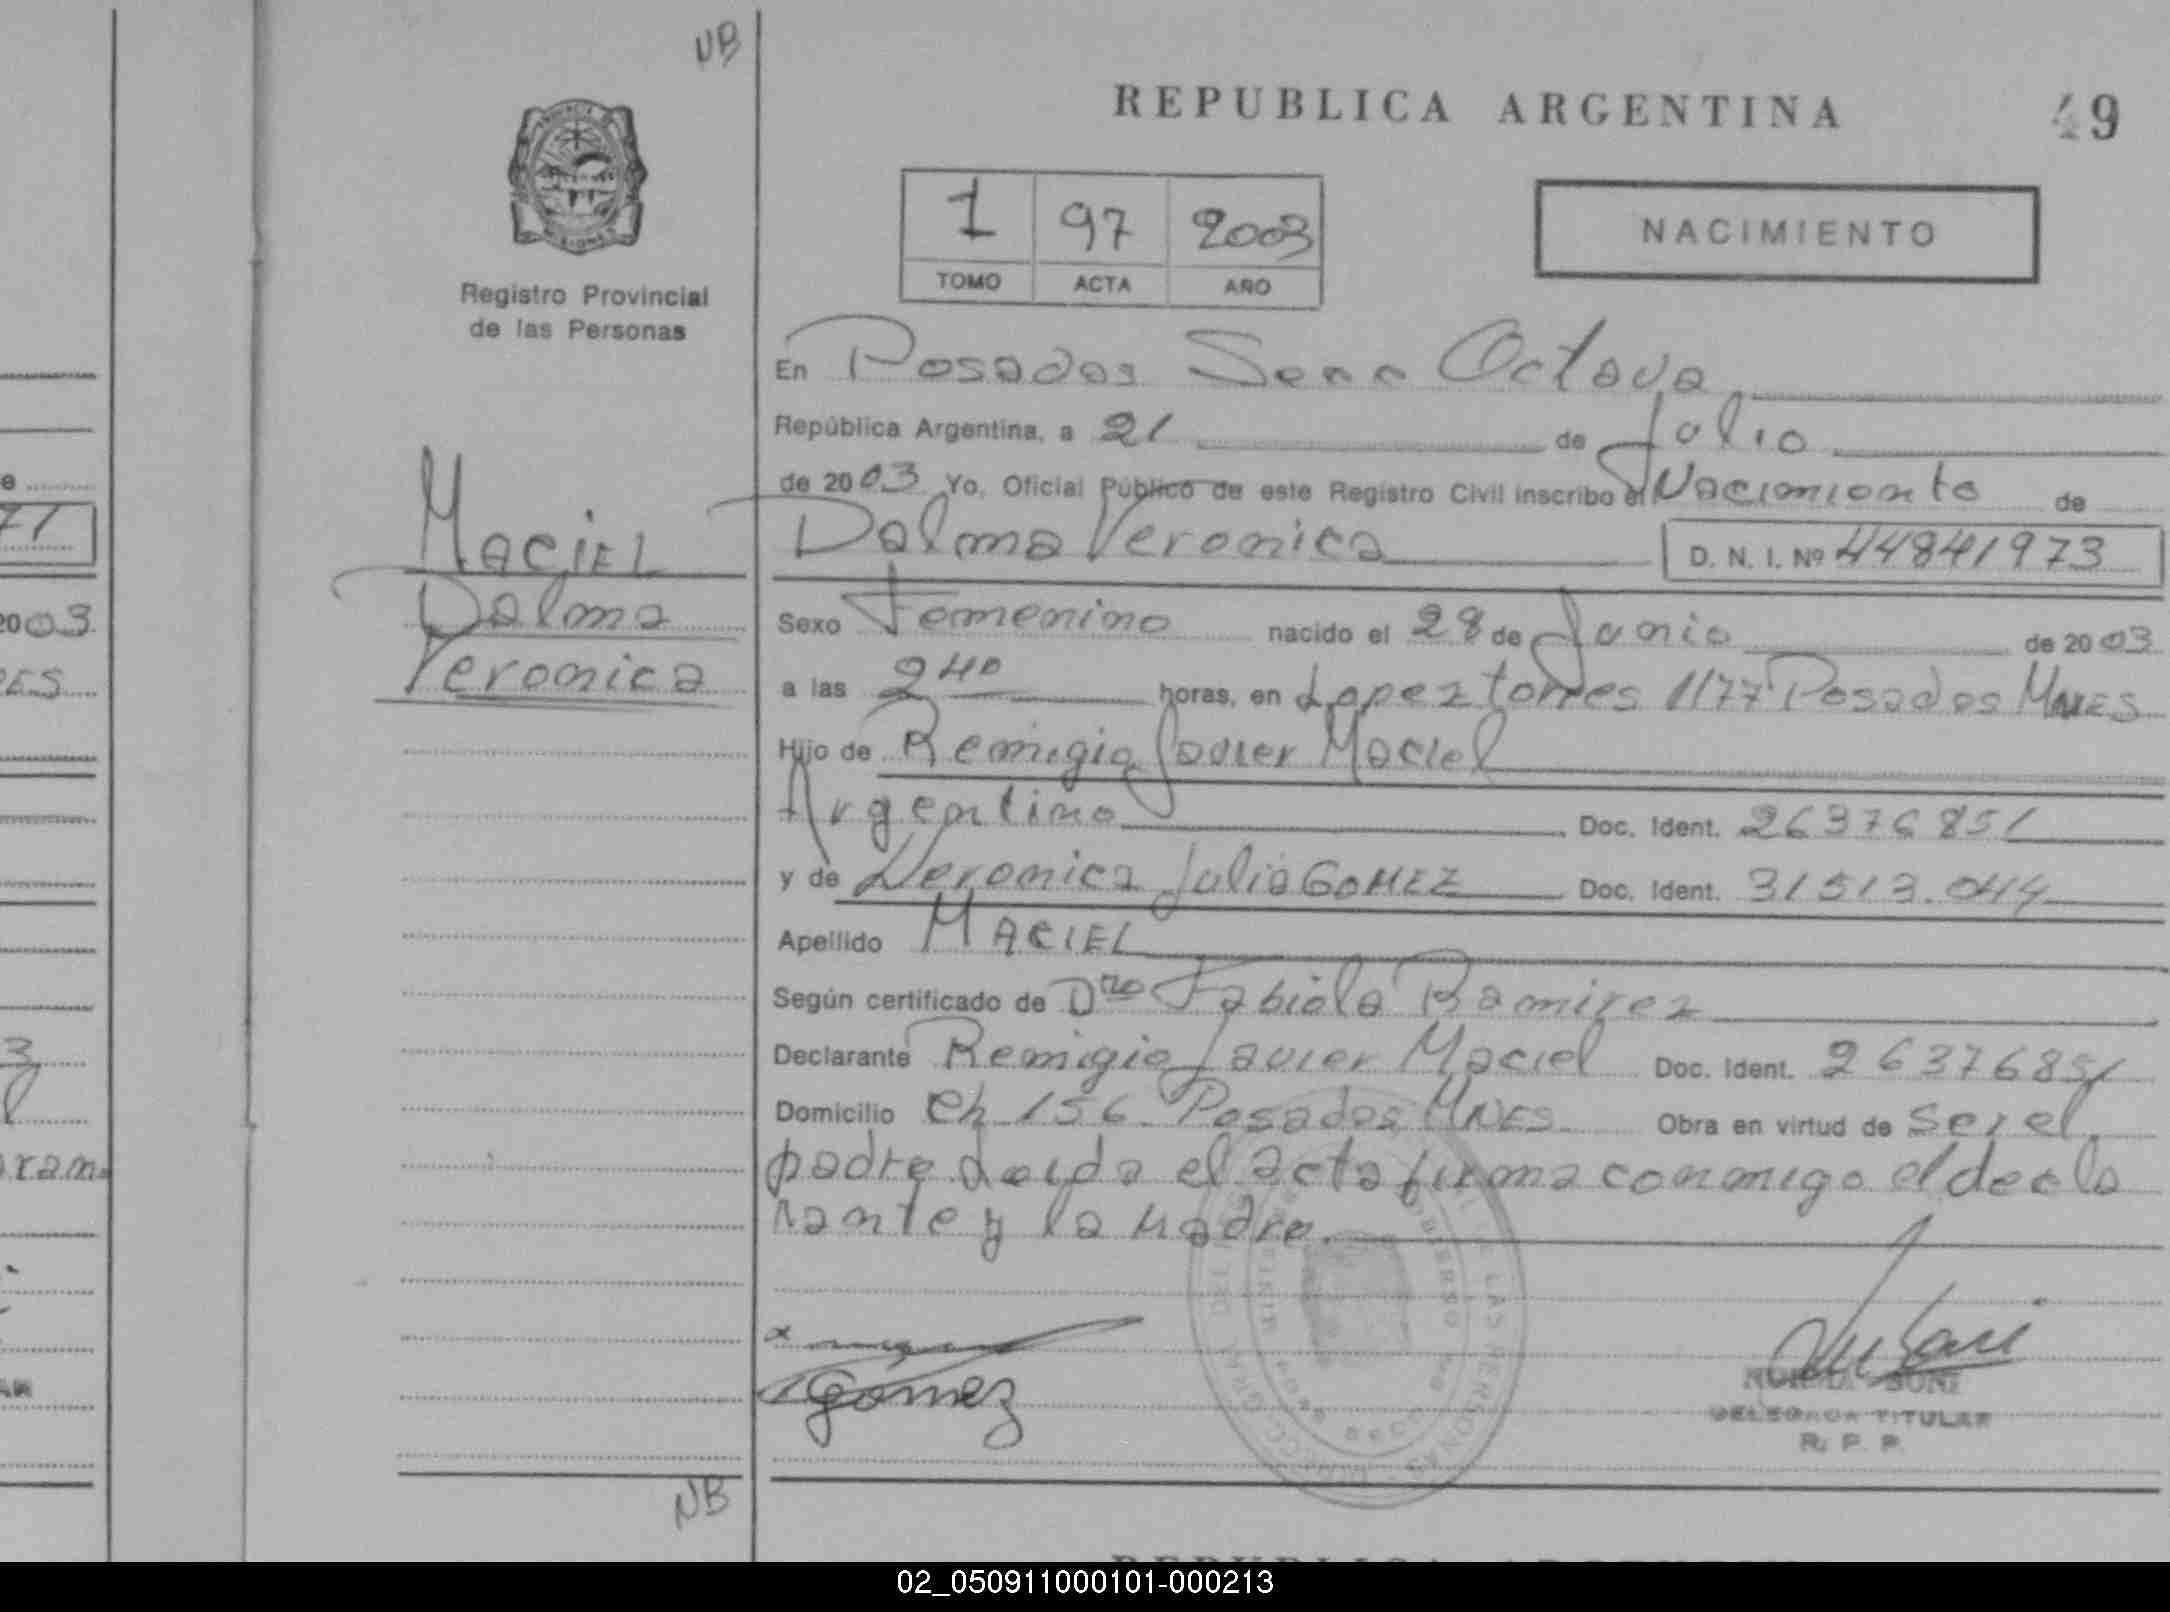 NB
REPUBLICA ARGENTINA
49
1 97 2003
TOMO ACTA AÑO
NACIMIENTO
Registro Provincial
de las Personas
Maciel
Dalma
Veronica
En Posadas Secc Octava
República Argentina, a 21 de Julio
de 2003 Yo, Oficial Público de este Registro Civil inscribo el Nacimiento de
Dalma Veronica D. N. I. Nº 44841973
Sexo Femenino nacido el 28 de Junio de 2003
a las 2 40 horas, en Lopez torres 1177 Posadas Mnes
Hijo de Remigio Javier Maciel
Argentino Doc. Ident. 26376851
y de Veronica Julia GOMEZ Doc. Ident. 31513.044
Apellido MACIEL
Según certificado de Dra Fabiola Ramirez
Declarante Remigio Javier Maciel Doc. Ident. 26376851
Domicilio Ch 156 Posadas MNES Obra en virtud de ser el
padre Leida el acta firma conmigo el decla
rante y la Madre.
Gomez
DELEGADA TITULAR
R. P. P.
NB
71
2003
02_050911000101-000213